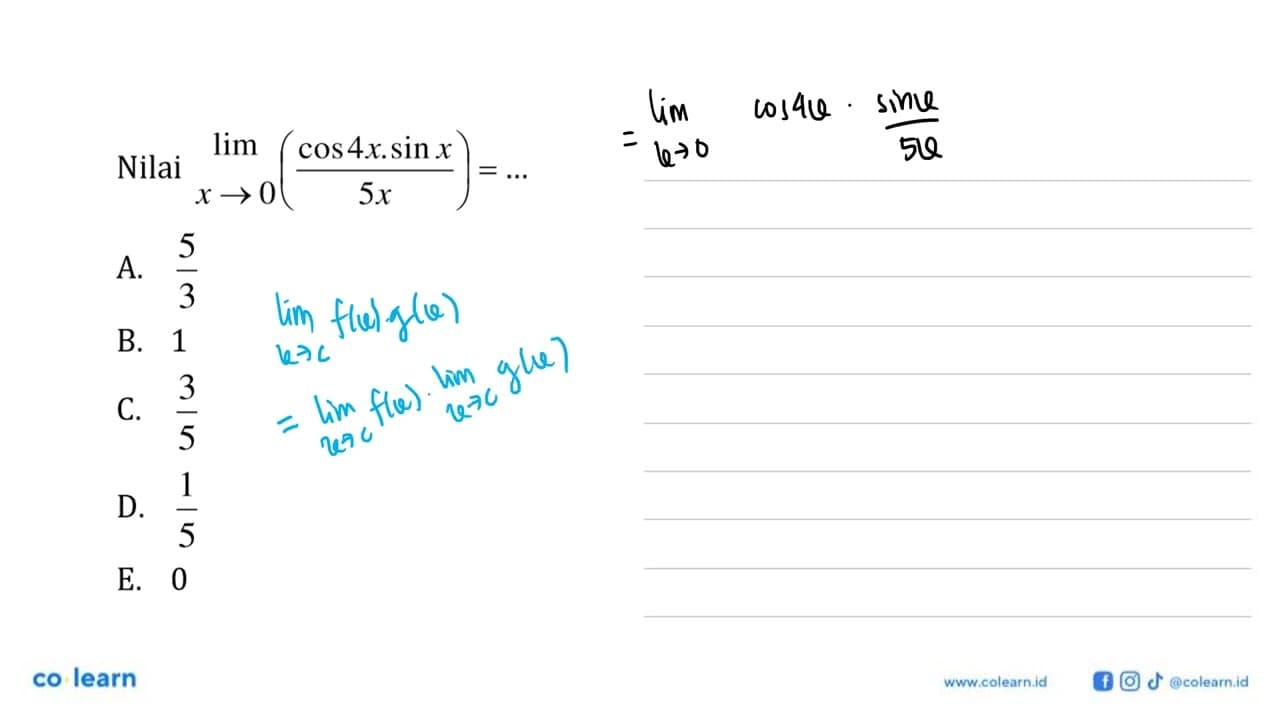 Nilai lim x → 0 (cos 4x . sin x / 5x) = ...
A. 5/3
B. 1
C. 3/5
D. 1/5
E. 0
lim x→c f(x).g(x)
= lim x→c f(x) . lim x→c g(x)
= lim x→0 cos4x . sinx / 5x
co learn
www.colearn.id @colearn.id